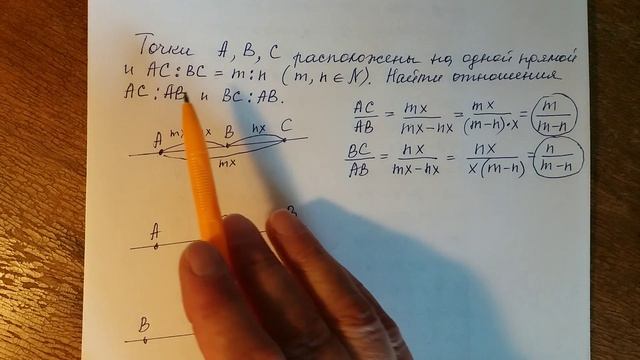 Точки A, B, C расположены на одной прямой
и AC : BC = m : n (m, n ∈ N). Найти отношения
AC : AB и BC : AB.
AC/AB = mx/(mx-nx) = mx/((m-n)·x) = m/(m-n)
BC/AB = nx/(mx-nx) = nx/(x(m-n)) = n/(m-n)
A B nx C
mx
A B
B